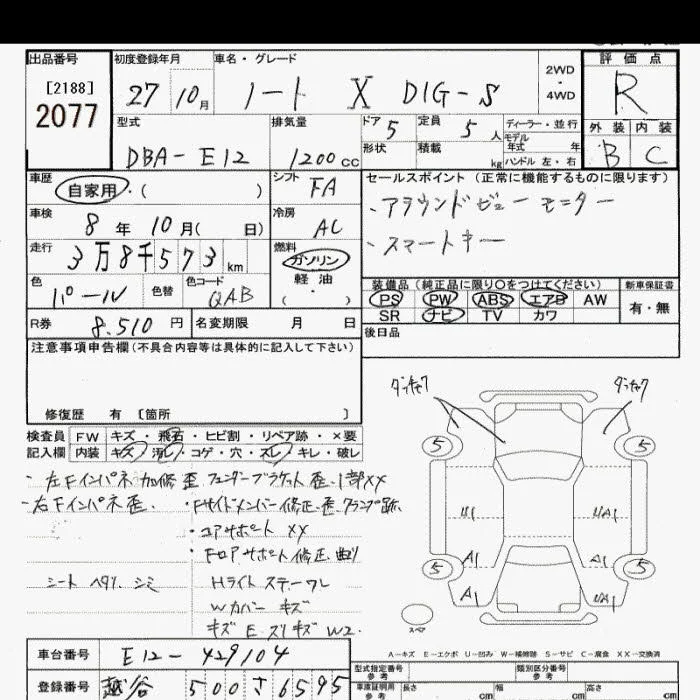 出品番号 初度登録年月 車名・グレード 評価点
[2188] 27 10月 ノート X DIG-S 2WD・4WD R
2077
型式 排気量 ドア 5 定員 5人 ディーラー・並行 外装 内装
DBA-E12 1200cc 形状 積載 kg モデル年式 年 B C
ハンドル 左・右
車歴 シフト セールスポイント (正常に機能するものに限ります)
自家用・( ) FA ・アラウンドビューモニター
車検 冷房 ・スマートキー
8年 10月( 日) AC
走行 燃料
3万8千573km ガソリン
色 色替 色コード 軽油
パール QAB ( ・ )
装備品 (純正品に限り○をつけてください) 新車保証書
PS PW ABS エアB AW 有・無
SR ナビ TV カワ
R券 8.510円 名変期限 月 日 後日品
注意事項申告欄(不具合内容等は具体的に記入して下さい)
修復歴 有 [箇所 ]
検査員 FW キズ・飛石・ヒビ割・リペア跡・×要
記入欄 内装 キズ・汚レ・コゲ・穴・スレ・キレ・破レ
・左Fインパネ加修歪 フェンダーブラケット歪、1部XX
・右Fインパネ歪、 ・Fサイドメンバー修正、歪、クランプ跡
・コアサポート XX
・Fロアサポート修正、曲り
シート ヘタリ、シミ Hライト ステーワレ
Wカバー キズ
キズ E ズリキズ W2
5 5
U1 UA1
A1 A1
5 5
A1 UA1
スペア
A-キズ E-エクボ U-凹み W-補修跡 S-サビ C-腐食 XX-交換済
車台番号 E12-429104
登録番号 越谷 500 さ 6595
型式指定番号 参考 類別区分番号 参考
車庫証明用 参考 長さ cm 幅 cm 高さ cm